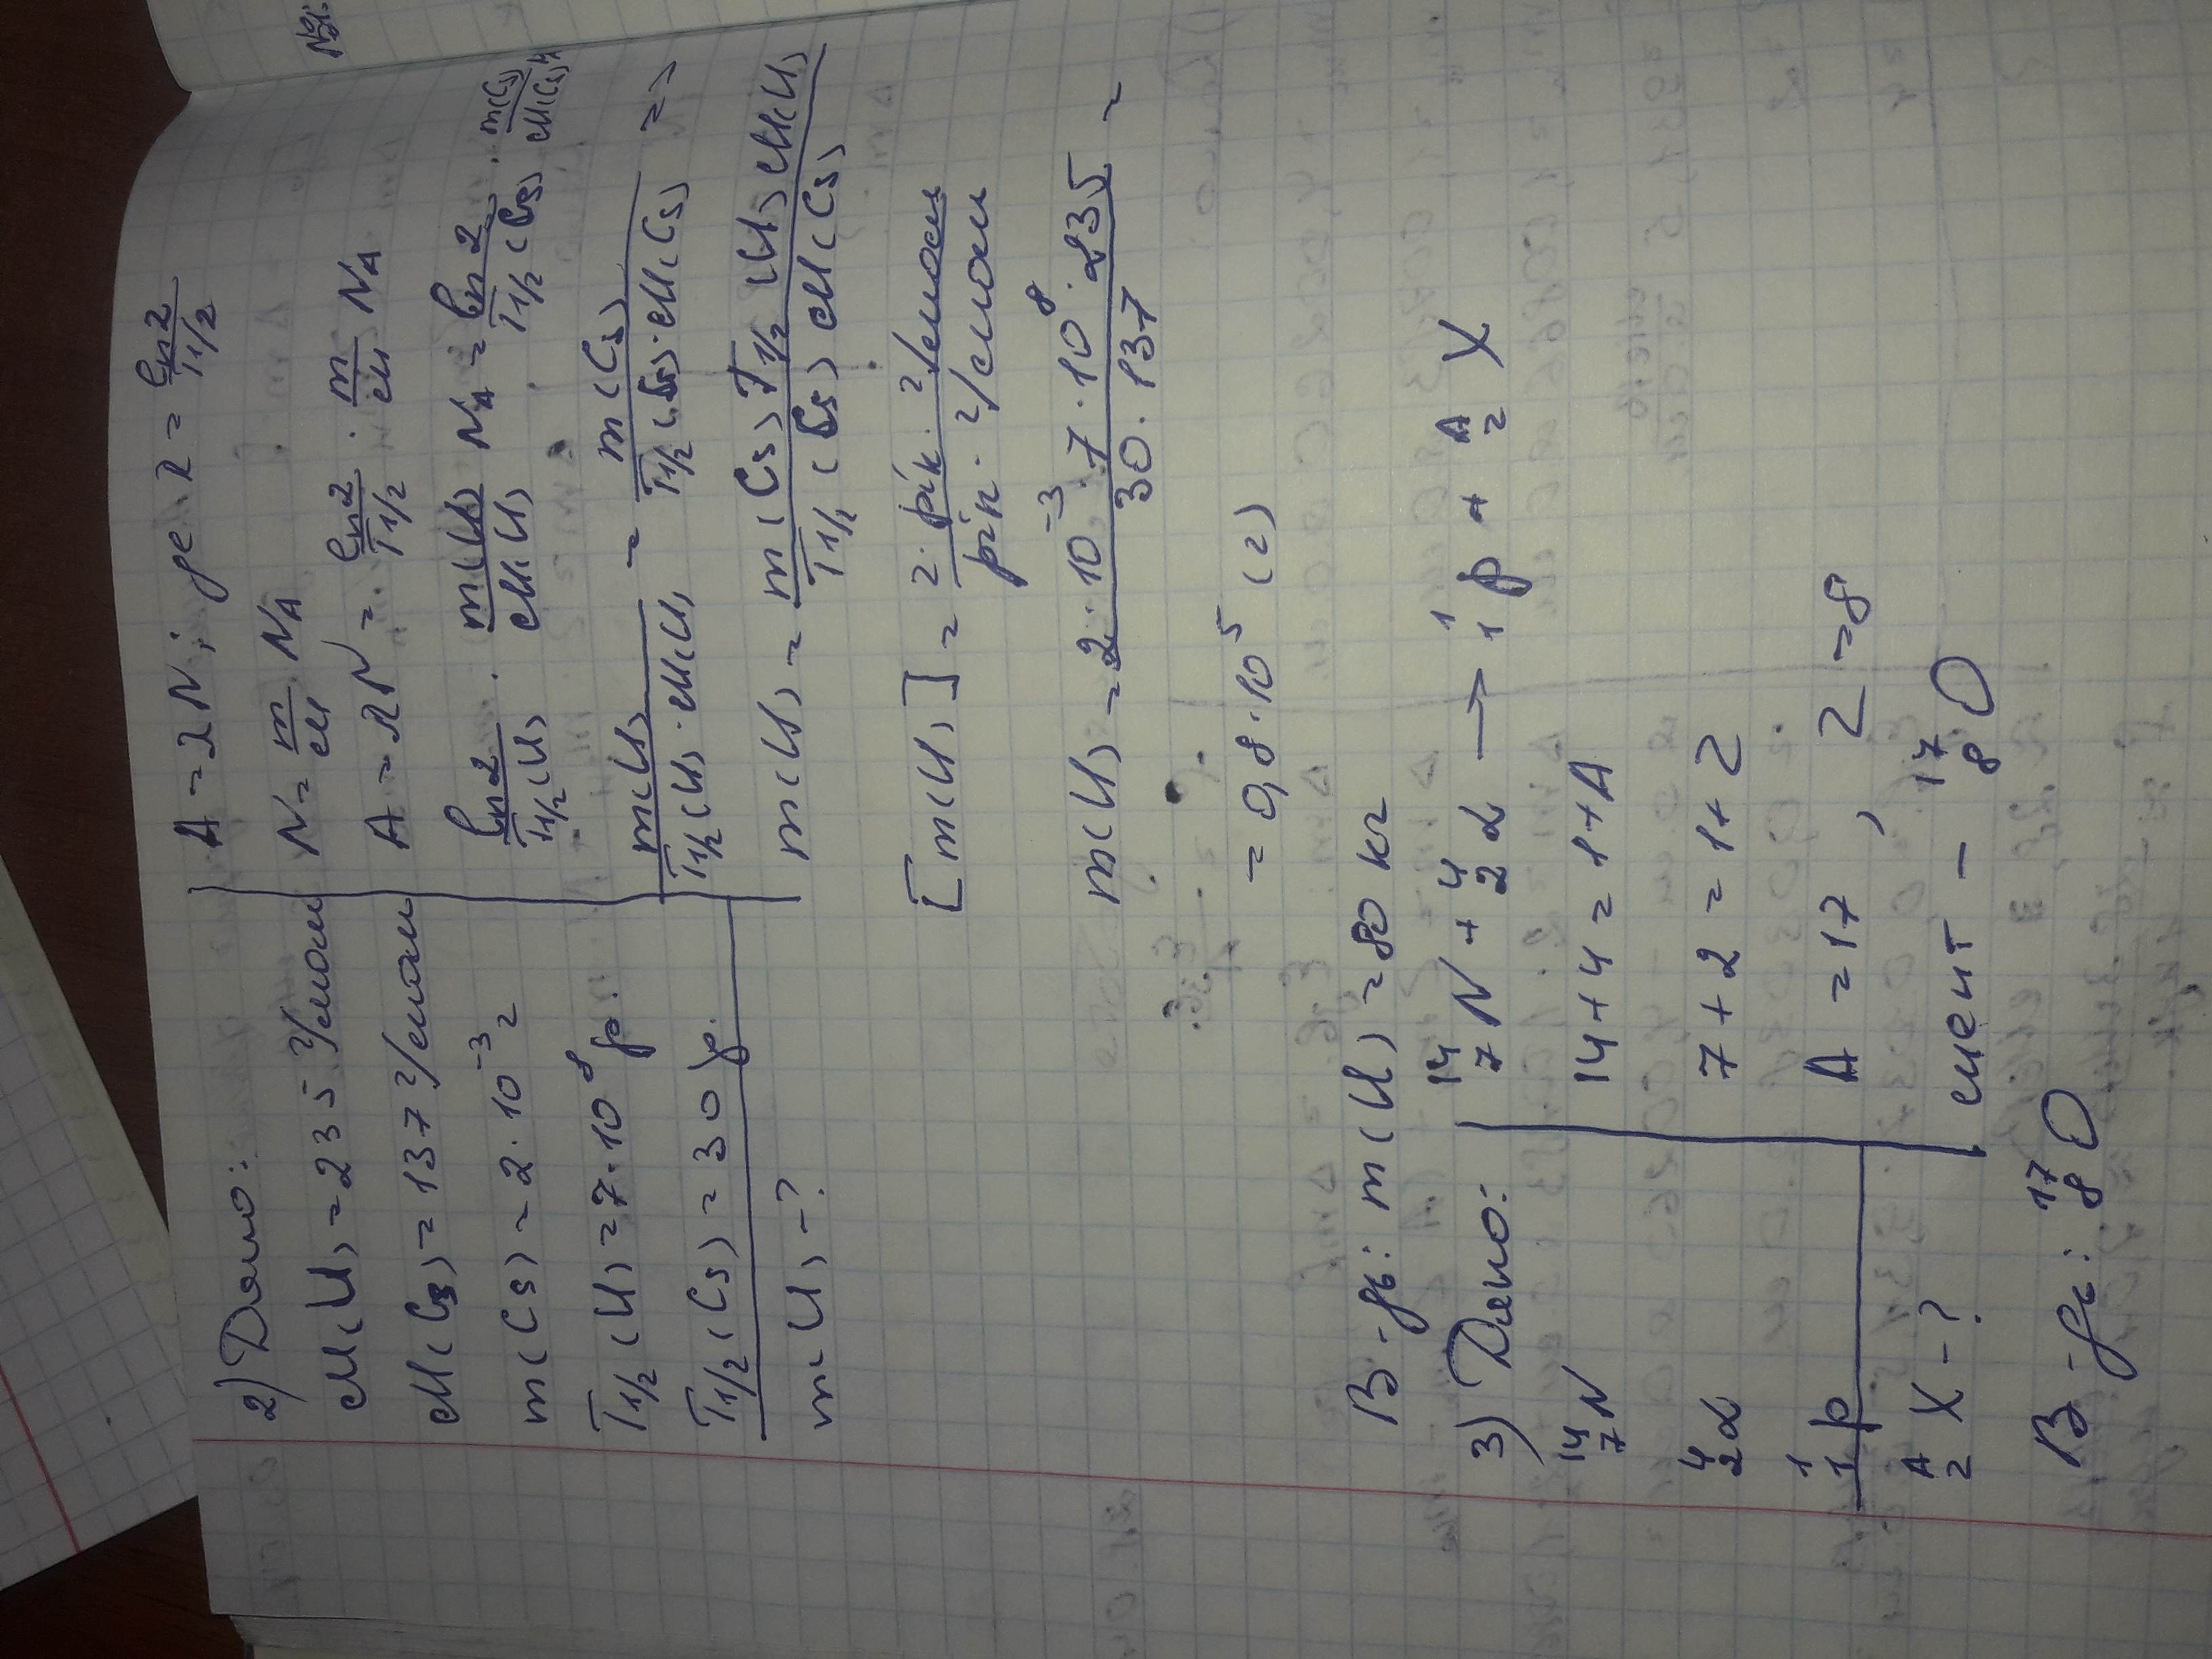 №
2) Дано:
M(U) = 235 г/моль
M(Cs) = 137 г/моль
m(Cs) = 2·10⁻³ г
T1/2(U) = 7·10⁸ р.
T1/2(Cs) = 30 р.
m(U) - ?
A = λN; де λ = ln2/T1/2
N = m/M NA
A = λN = ln2/T1/2 · m/M NA
ln2/T1/2(U) · m(U)/M(U) NA = ln2/T1/2(Cs) · m(Cs)/M(Cs) NA
m(U)/T1/2(U)·M(U) = m(Cs)/T1/2(Cs)·M(Cs) =>
m(U) = m(Cs) T1/2(U) M(U)/T1/2(Cs) M(Cs)
[m(U)] = г · рік · г/моль/рік · г/моль
m(U) = 2·10⁻³·7·10⁸·235/30·137 =
= 0,8·10⁵ (г)
В-дь: m(U) = 80 кг
3) Дано:
¹⁴₇N
⁴₂α
¹₁p
ᴬ_Z X - ?
¹⁴₇N + ⁴₂α → ¹₁p + ᴬ_Z X
14+4 = 1+A
7+2 = 1+Z
A = 17, Z = 8
елемент – ¹⁷₈O
В-дь: ¹⁷₈O